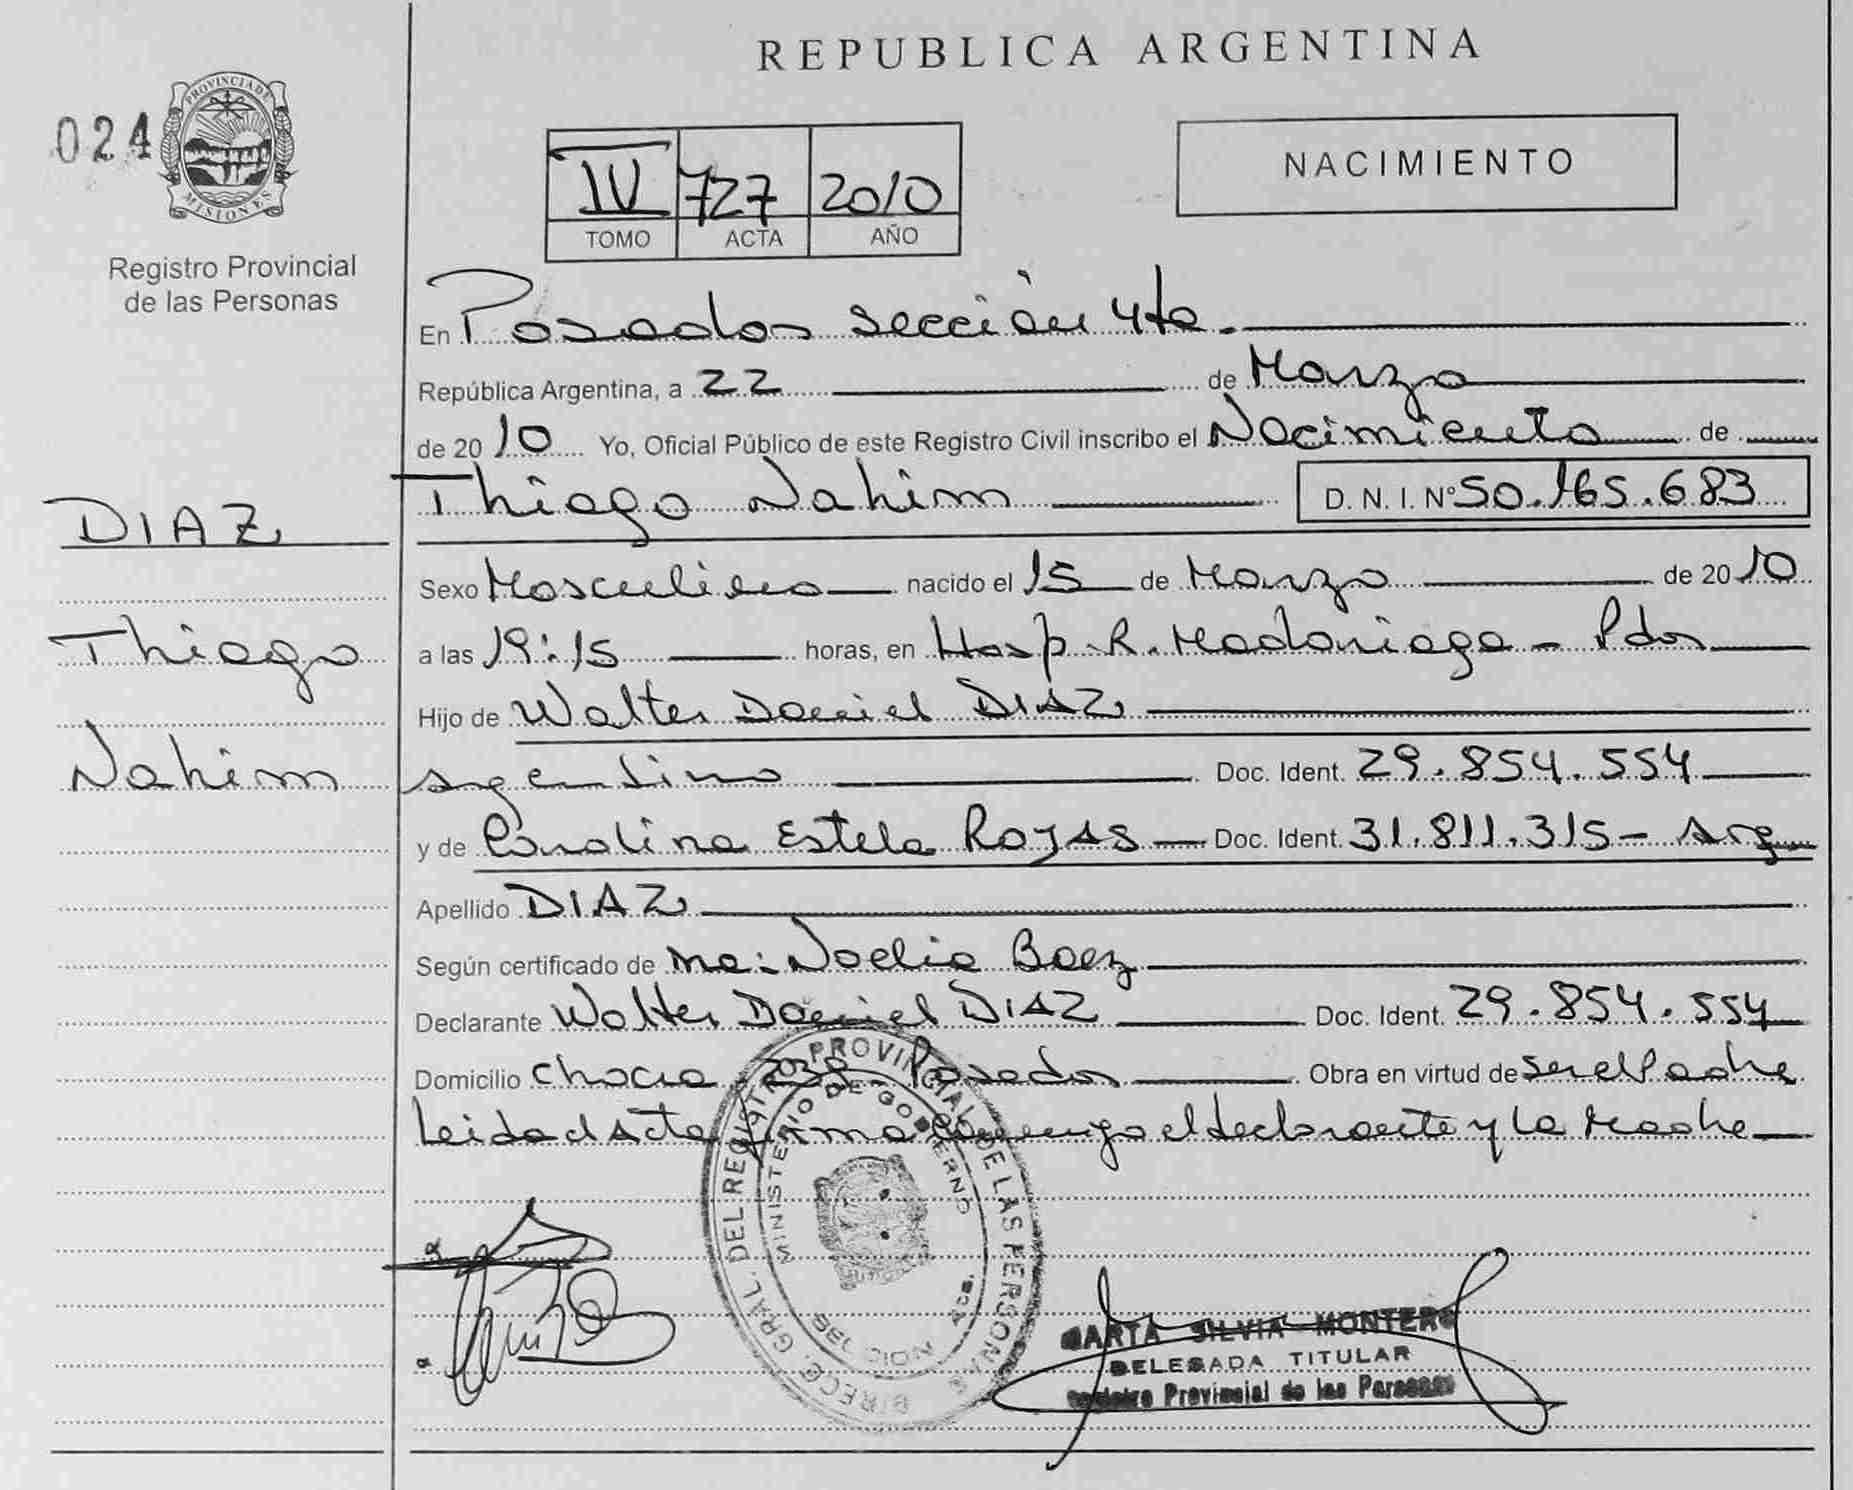 REPUBLICA ARGENTINA
024
PROVINCIA DE
MISIONES
Registro Provincial
de las Personas
IV 727 2010
TOMO ACTA AÑO
NACIMIENTO
En Posadas sección 4ta.
República Argentina, a 22 de Marzo
de 2010 Yo, Oficial Público de este Registro Civil inscribo el Nacimiento de
Thiago Nahim D. N. I. Nº 50.165.683
DIAZ
Thiago
Nahim
Sexo Masculino nacido el 15 de Marzo de 2010
a las 19:15 horas, en Hosp. R. Madariaga - Pdas
Hijo de Walter Daniel DIAZ
argentino Doc. Ident. 29.854.554
y de Carolina Estela ROJAS Doc. Ident. 31.811.315 - Arg
Apellido DIAZ
Según certificado de Noelia Baez
Declarante Walter Daniel DIAZ Doc. Ident. 29.854.554
Domicilio chacra - Posadas Obra en virtud de ser el Padre
Leida el Acta firma conmigo el declarante y la Madre
DIRECC. GRAL. DEL REGISTRO PROVINCIAL DE LAS PERSONAS
MINISTERIO DE GOBIERNO
MARTA SILVIA MONTERO
DELEGADA TITULAR
Registro Provincial de las Personas